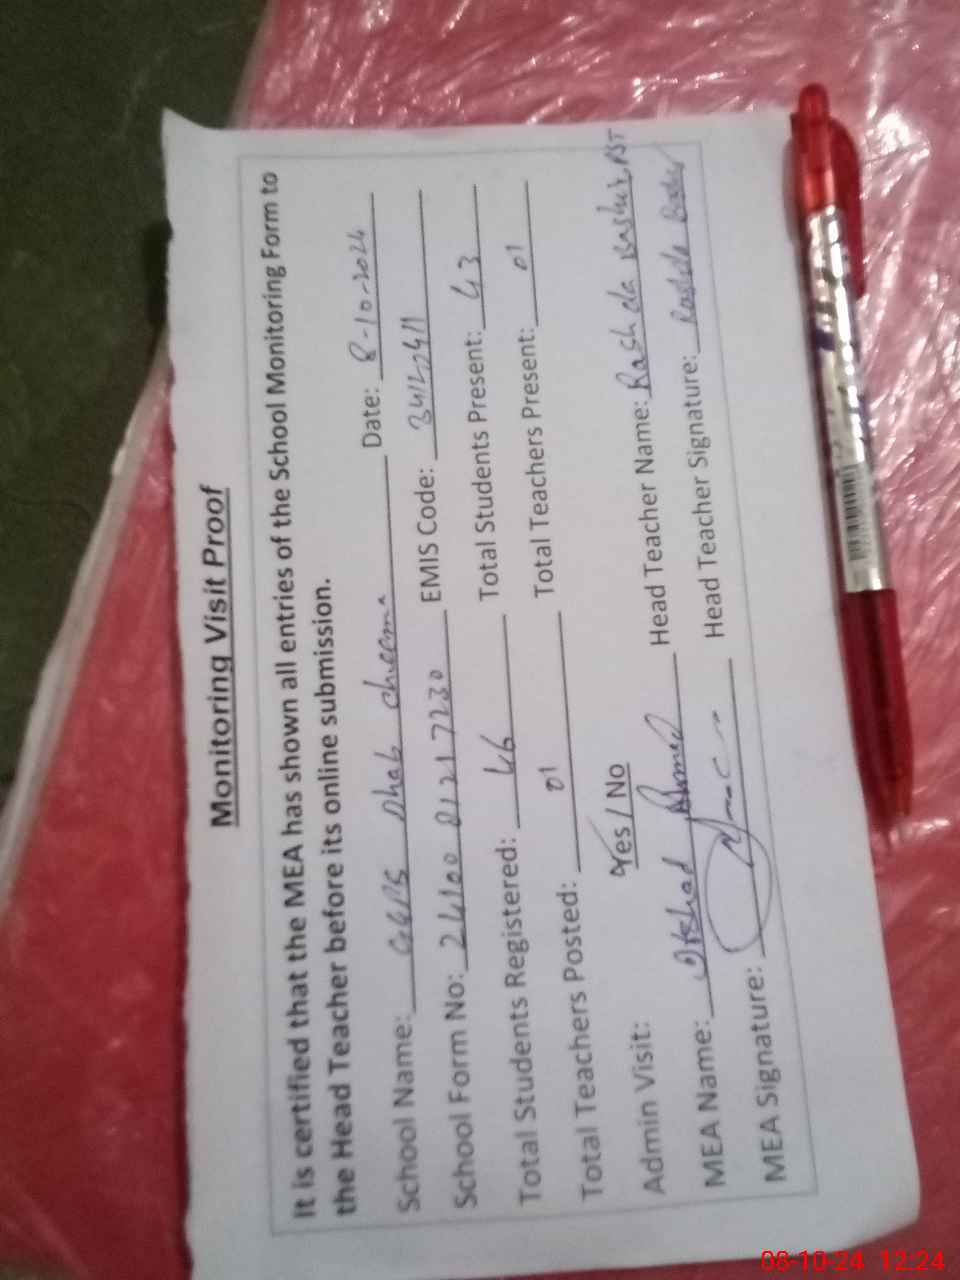 Monitoring Visit Proof
It is certified that the MEA has shown all entries of the School Monitoring Form to
the Head Teacher before its online submission.
School Name: GGPS Dhab cheema Date: 8-10-2024
School Form No: 2410001217230 EMIS Code: 34120411
Total Students Registered: 46 Total Students Present: 43
Total Teachers Posted: 01 Total Teachers Present: 01
Admin Visit: Yes / No
MEA Name: Ahmed Head Teacher Name: Rashda Bashir PST
MEA Signature: Head Teacher Signature:
08-10-24 12:24